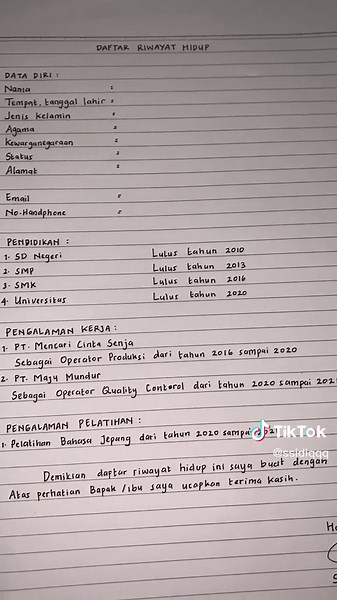 DAFTAR RIWAYAT HIDUP
DATA DIRI :
Nama :
Tempat, tanggal lahir :
Jenis Kelamin :
Agama :
Kewarganegaraan :
Status :
Alamat :
Email :
No. Handphone :
PENDIDIKAN :
1. SD Negeri Lulus tahun 2010
2. SMP Lulus tahun 2013
3. SMK Lulus tahun 2016
4. Universitas Lulus tahun 2020
PENGALAMAN KERJA :
1. PT. Mencari Cinta Senja
Sebagai Operator Produksi dari tahun 2016 sampai 2020
2. PT. Maju Mundur
Sebagai Operator Quality Contorol dari tahun 2020 sampai 202
PENGALAMAN PELATIHAN :
1. Pelatihan Bahasa Jepang dari tahun 2020 sampai 2021
TikTok
@ssidiqqq
Demikian daftar riwayat hidup ini saya buat dengan
Atas perhatian Bapak /ibu saya ucapkan terima kasih.